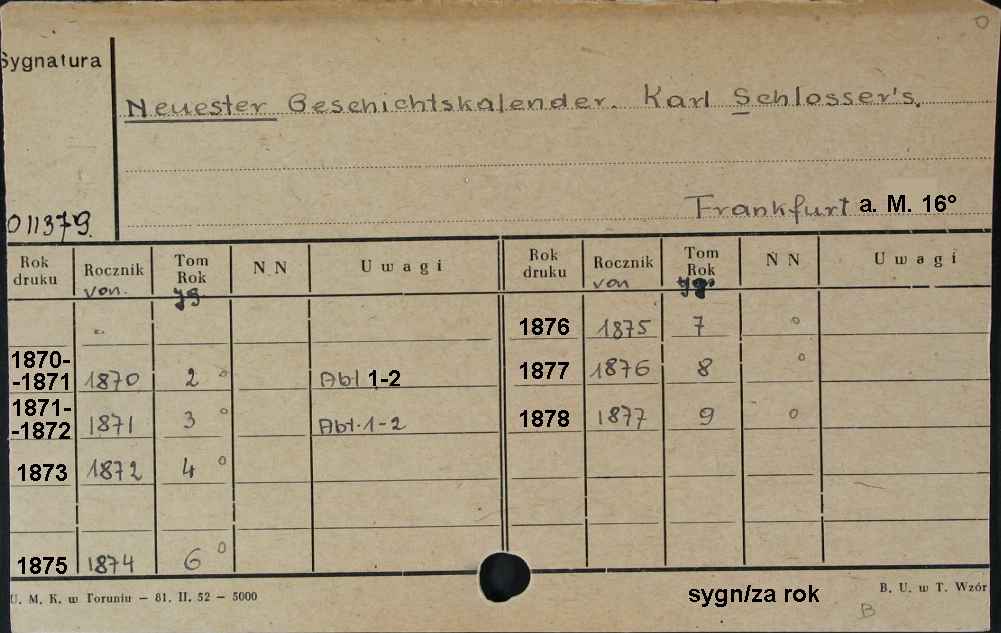 Sygnatura
Neuester Geschichtskalender. Karl Schlosser's.
Frankfurt a. M. 16°
011379.
Rok druku Rocznik von. Tom Rok Jg. N N Uwagi Rok druku Rocznik von Tom Rok Jg. N N Uwagi
1876 1875 7 °
1870-
-1871 1870 2 ° Abt 1-2 1877 1876 8 °
1871-
-1872 1871 3 ° Abt. 1-2 1878 1877 9 °
1873 1872 4 °
1875 1874 6 °
U. M. K. w Toruniu – 81. II. 52 – 5000
sygn/za rok
B. U. w T. Wzór
B